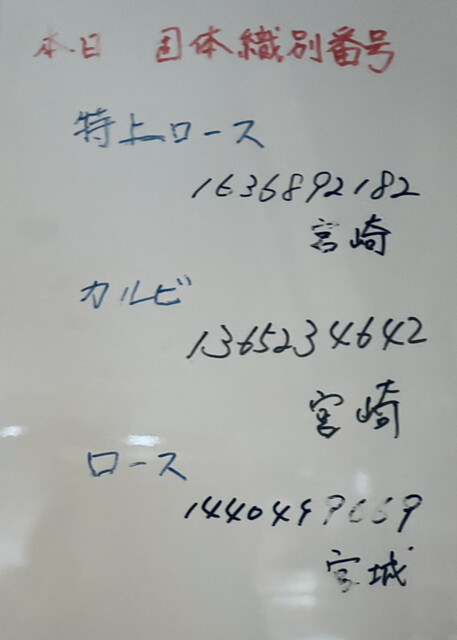 本日 固体織別番号
特上ロース
1636892182
宮崎
カルビ
1365234642
宮崎
ロース
宮城